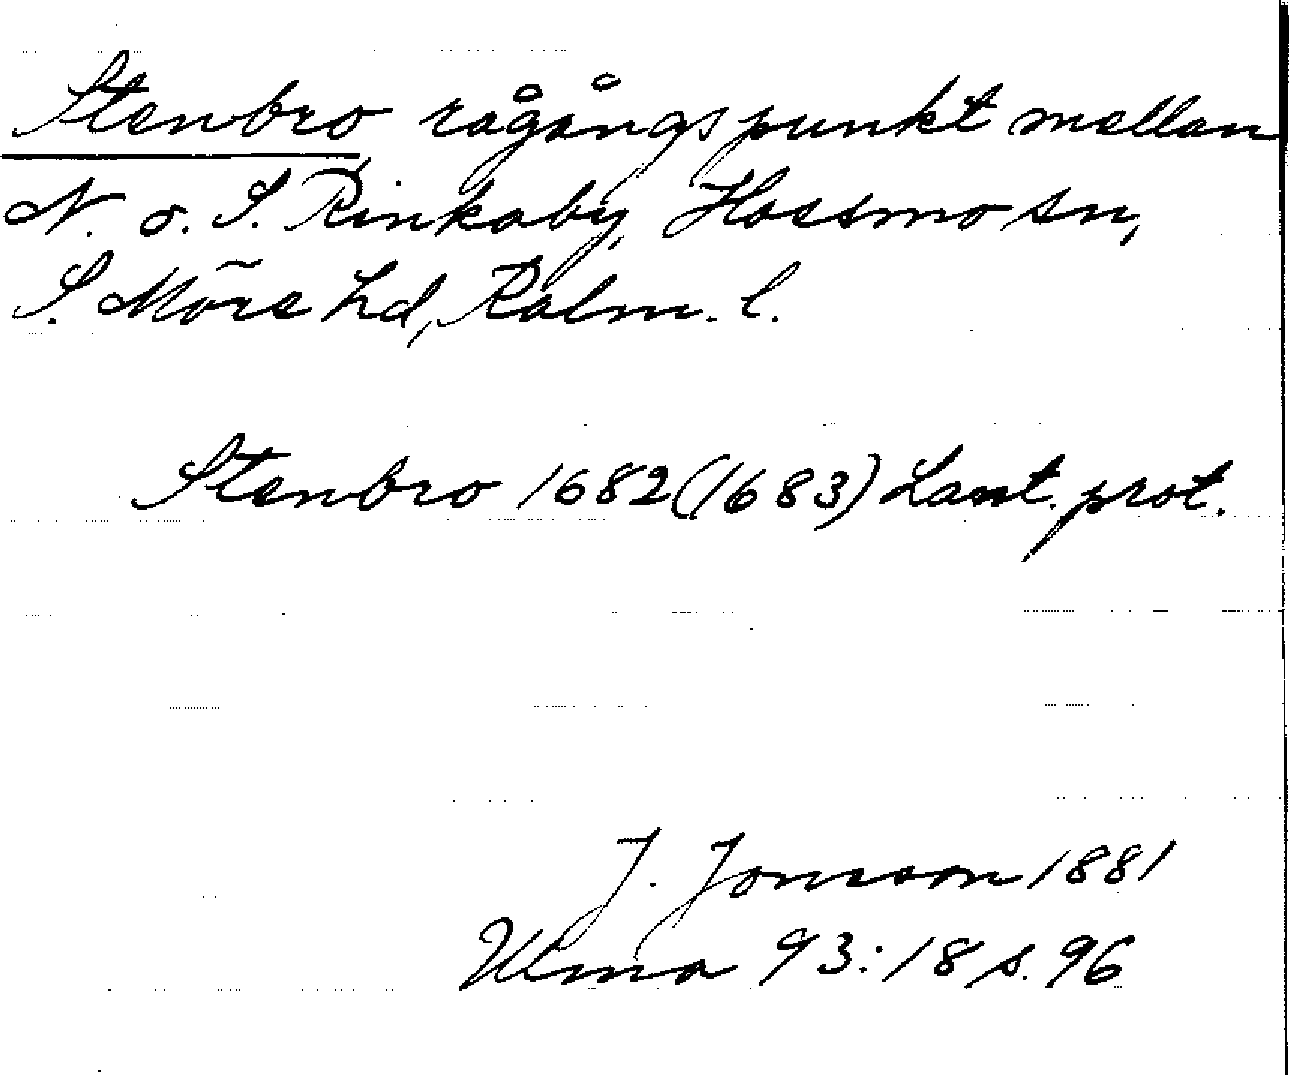 Stenbro rågångspunkt mellan
N. o. S. Rinkaby, Hossmo sn,
S. Möre hd, Kalm. l.
Stenbro 1682 (1683) Lant. prot.
J. Jonsson 1881
Ulma 93:18 s. 96